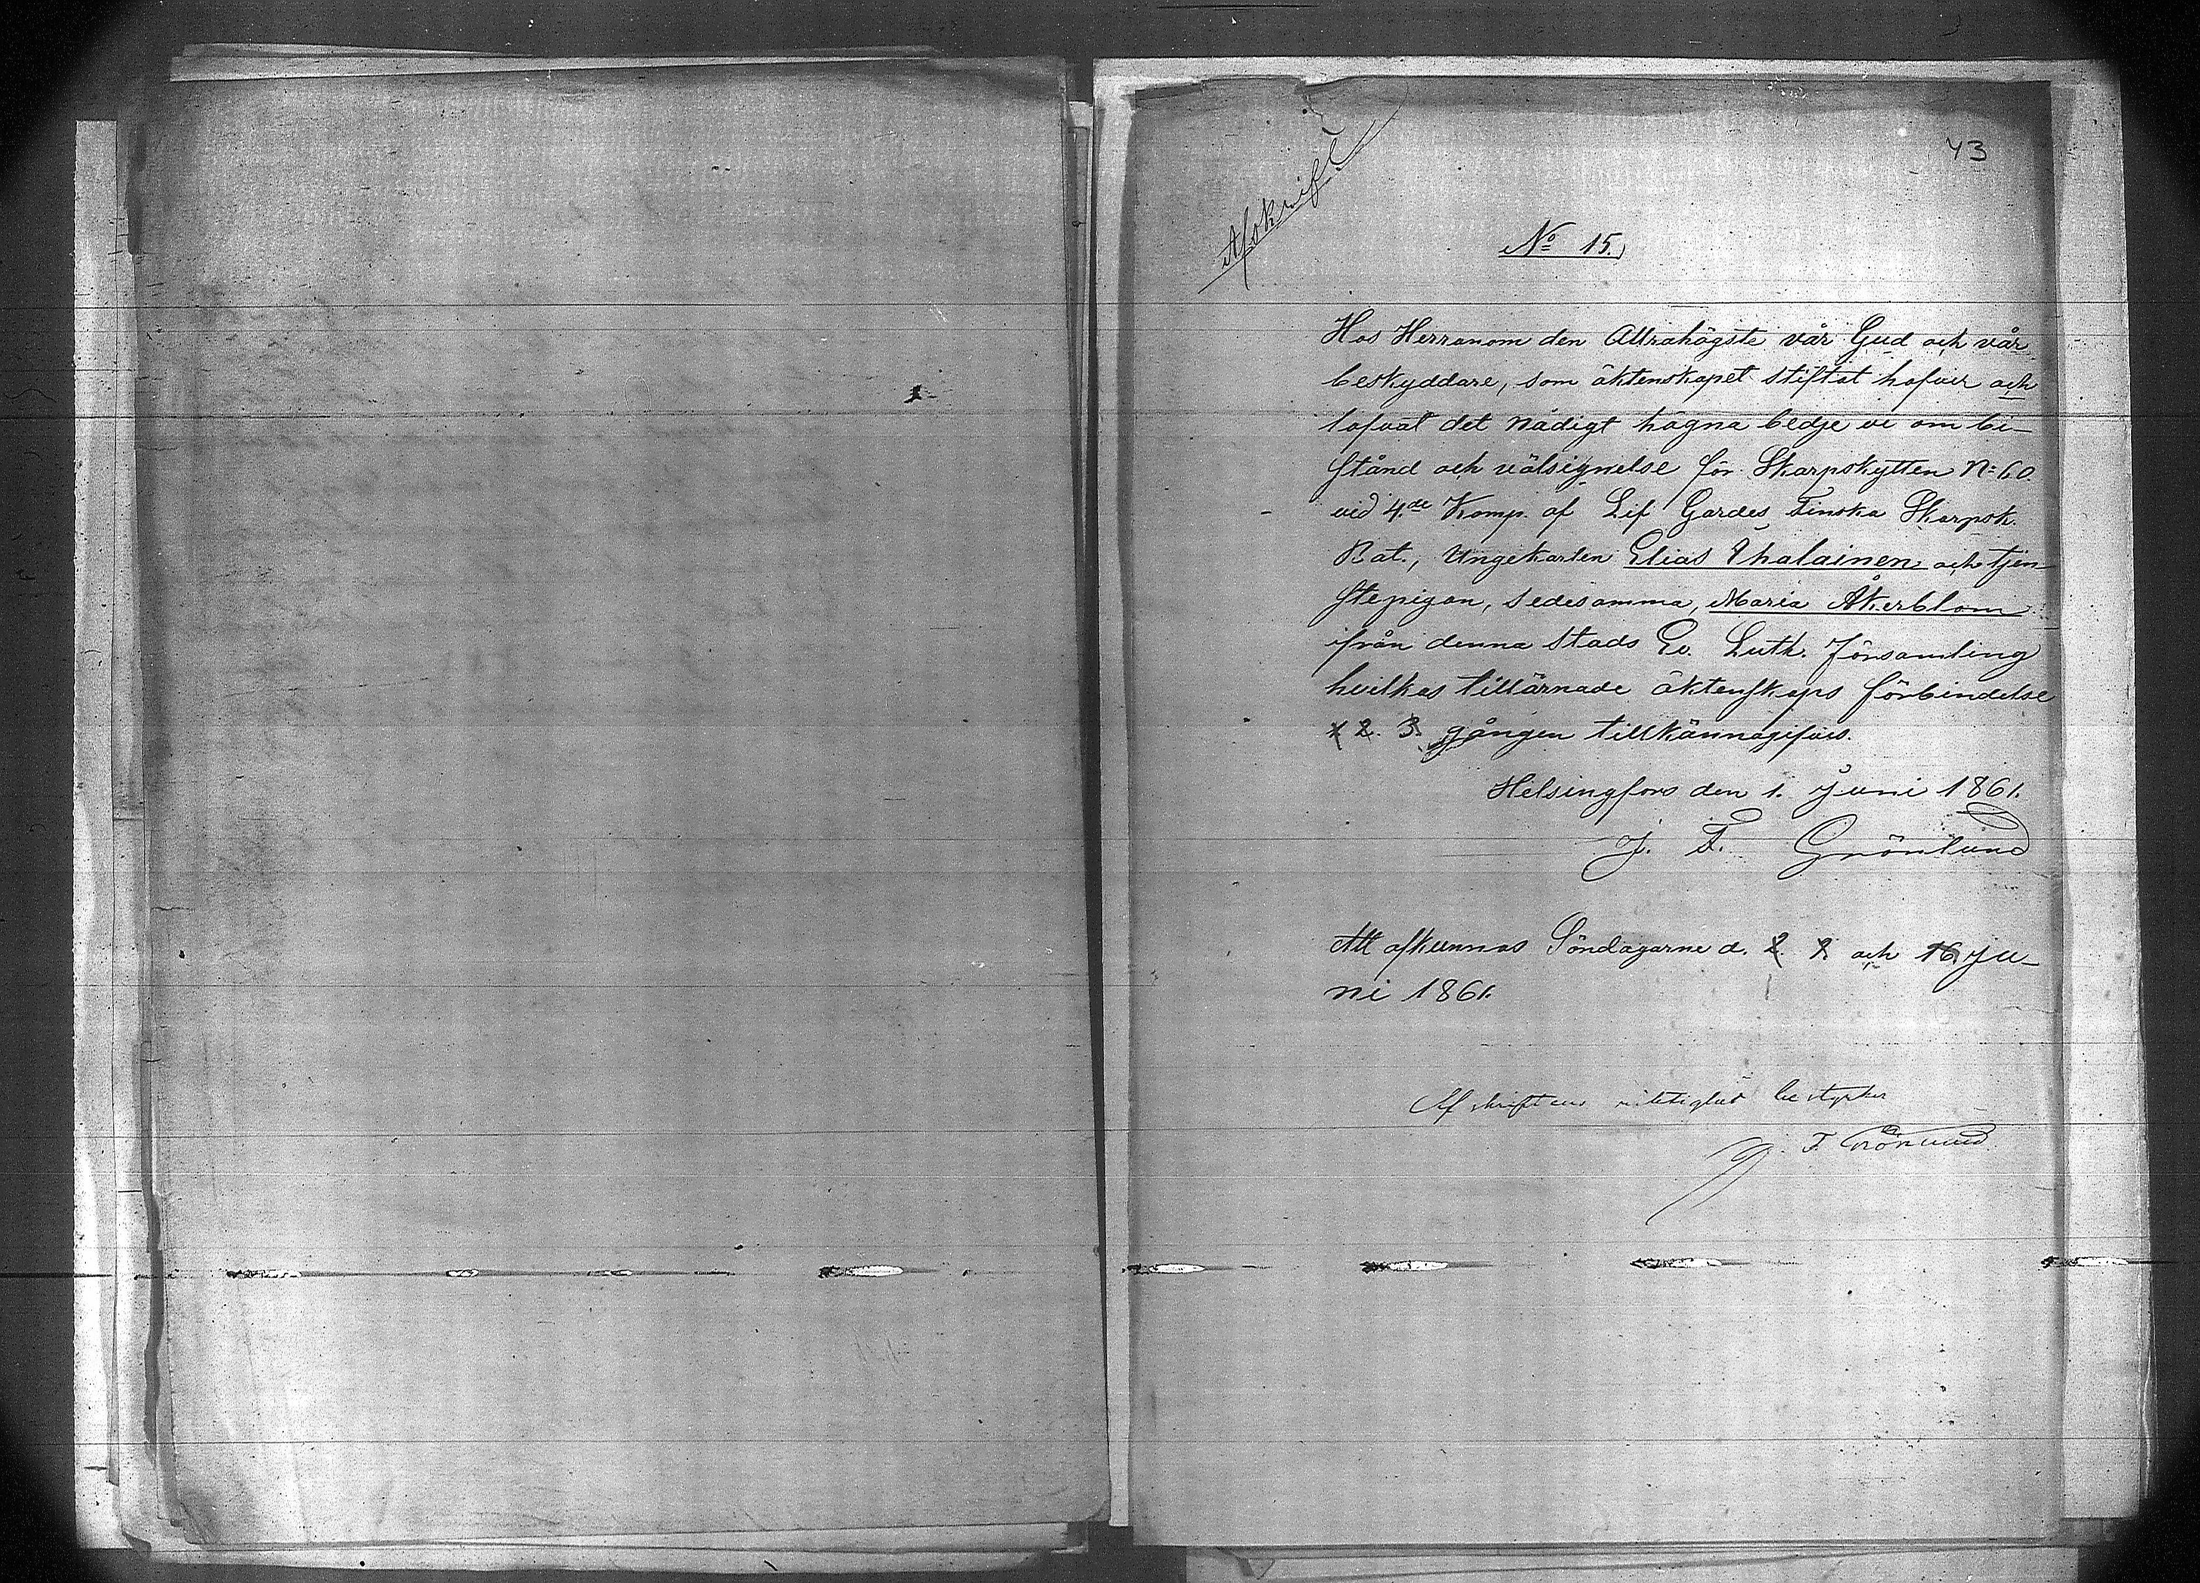 43
Afskrift
No 15.
Hos Herranom den Allrahögste vår Gud och vår
beskyddare, som äktenskapet stiftat hafver och
lofvat det nådigt hägna bedje vi om bi-
stånd och välsignelse för Skarpskytten N:o 60
vid 4.de Komp. af Lif Gardes Finska Skarpsk.
Bat., Ungekarlen Elias Ihalainen och tjen-
stepigan, sedesamma, Maria Åkerblom
ifrån denna Stads Ev. Luth. Församling
hvilkas tillärnade äktenskaps förbindelse
1 2. 3. gången tillkännagifves.
Helsingfors den 1. Juni 1861.
J. F. Grönlund
Att afkunnas Söndagarne d. 2. 9. och 16 Ju-
ni 1861.
Afskriftens riktighet bestyrker
J. F. Grönlund.